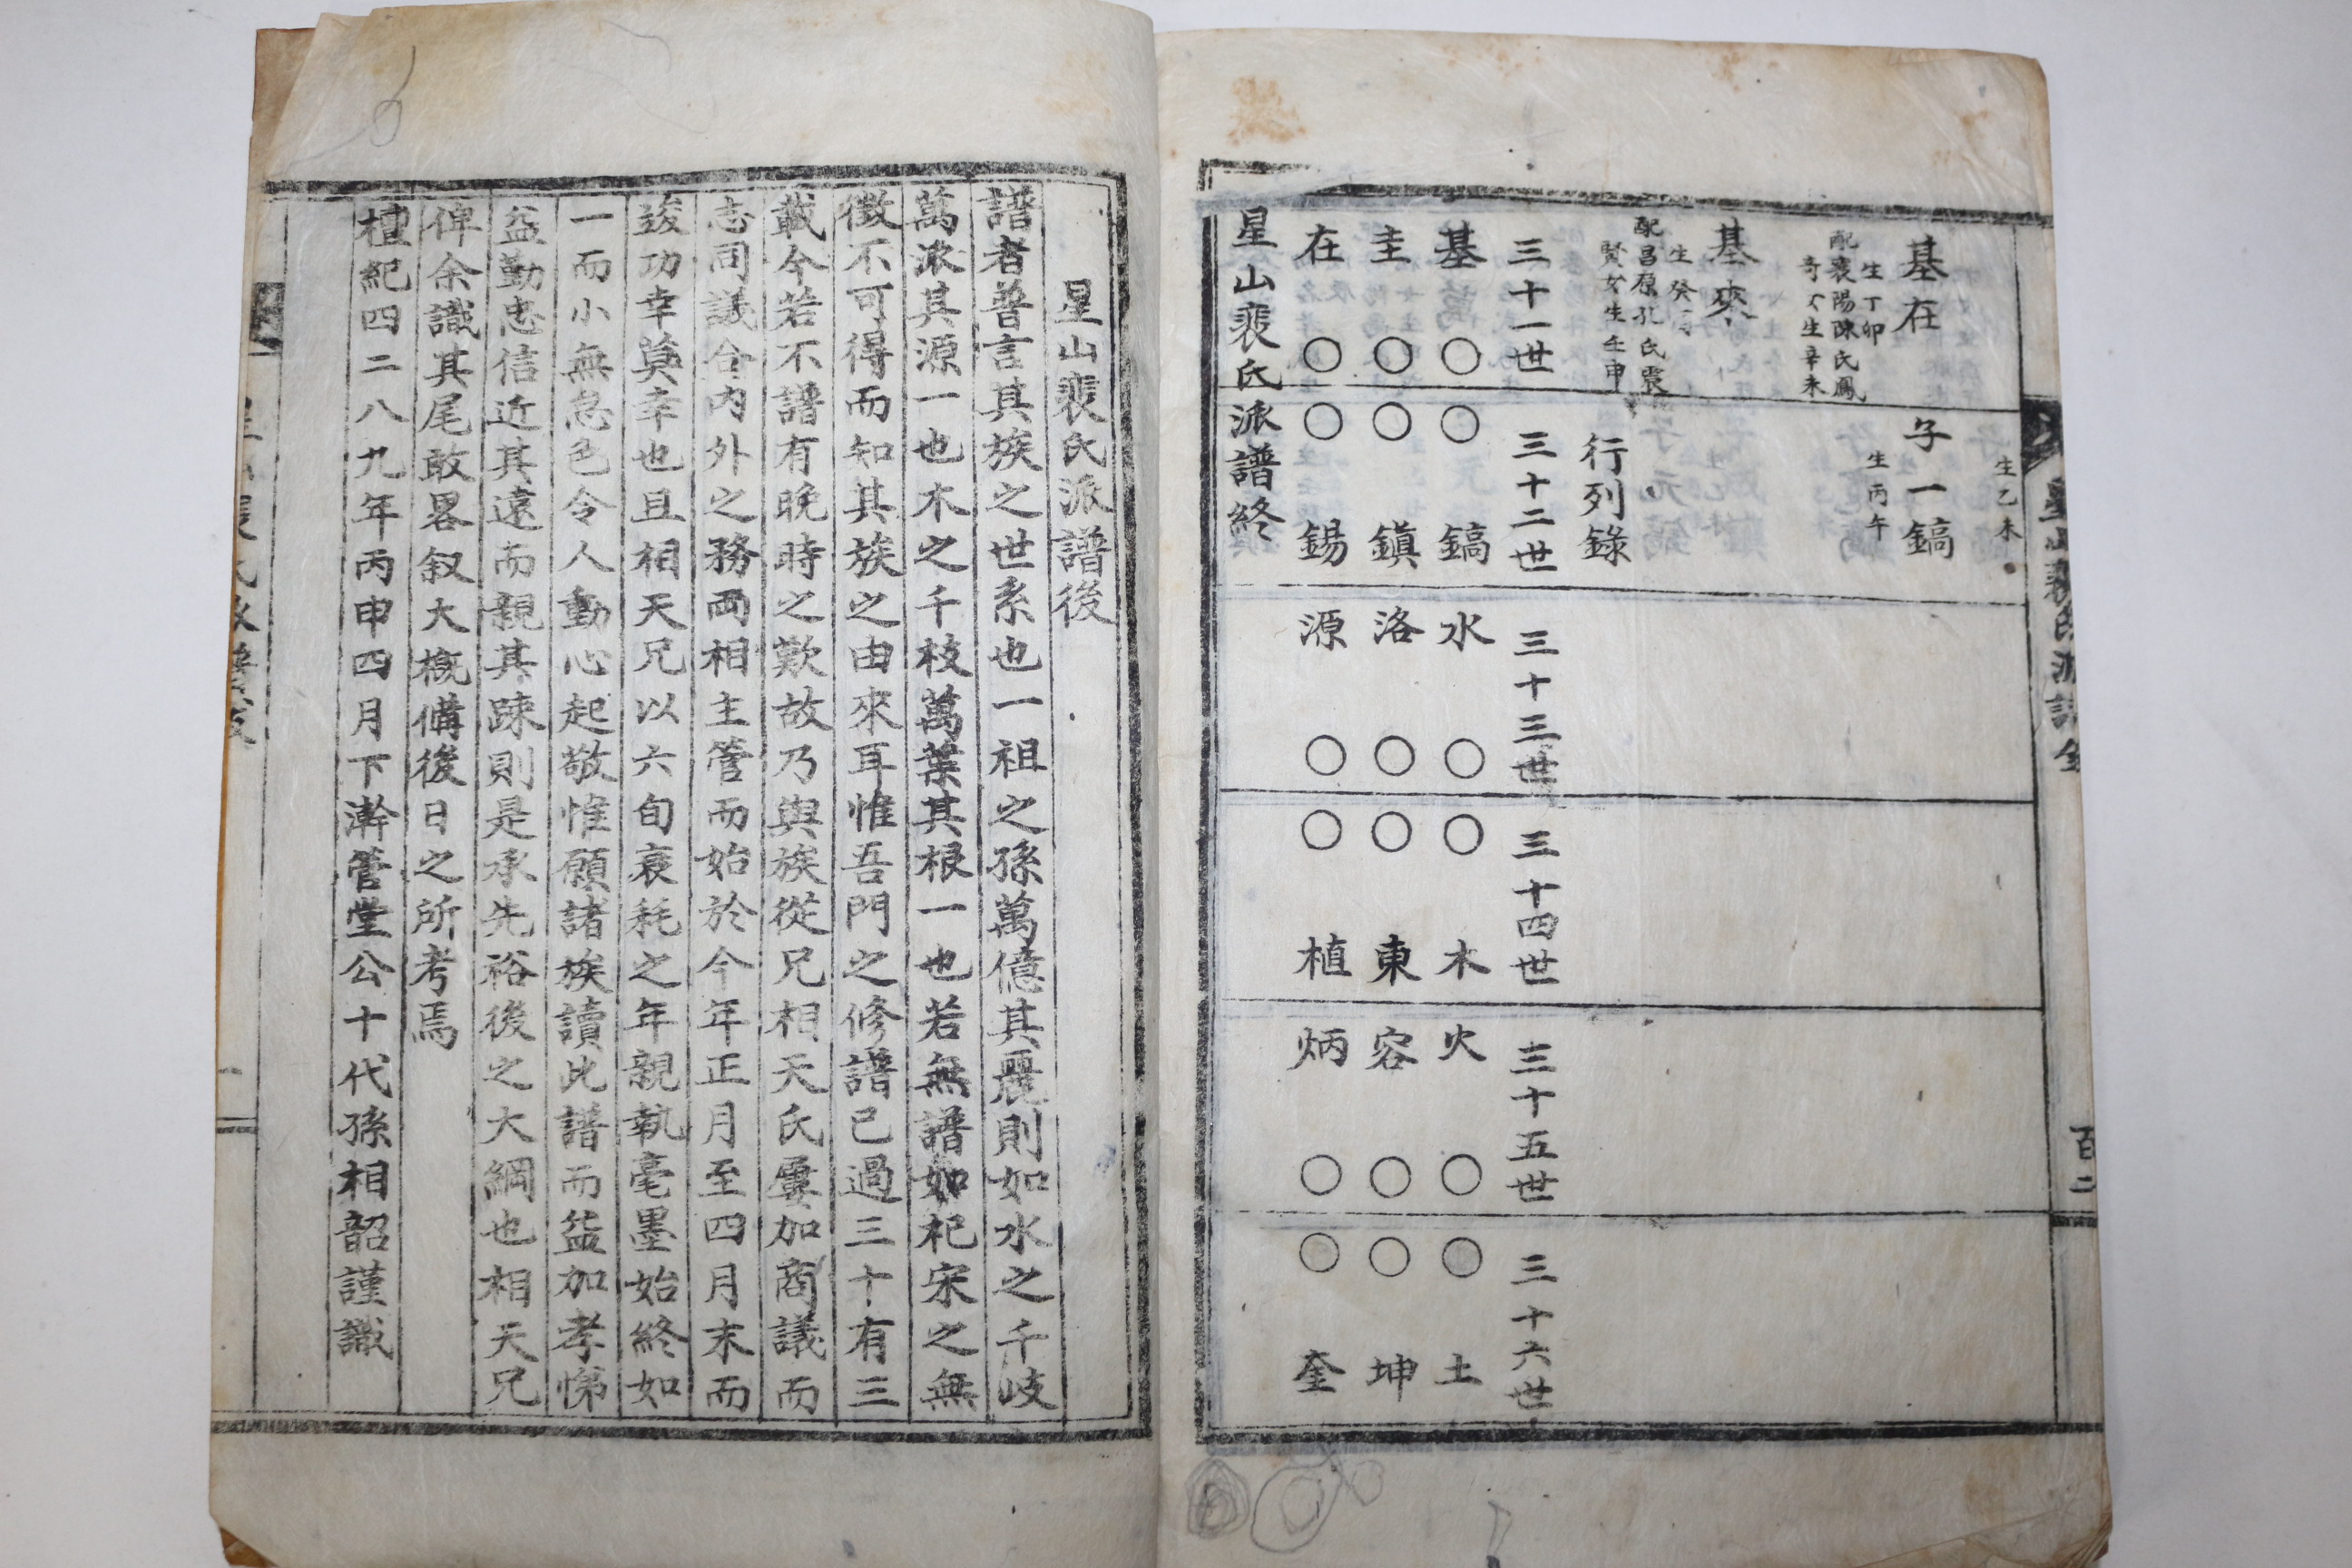 星山裵氏派譜全
百二
生乙未
基在
生丁卯
配襄陽陳氏鳳
奇女生辛未
子一鎬
生丙午
基來
生癸酉
配昌原孔氏震
賢女生壬申
行列錄
三十一世
三十二世
三十三世
三十四世
三十五世
三十六世
基○
○鎬
水○
○木
火○
○土
圭○
○鎭
洛○
○東
容○
○坤
在○
○錫
源○
○植
炳○
○奎
星山裵氏派譜終
星山裵氏派譜後
譜者普言其族之世系也一祖之孫萬億其麗則如水之千岐
萬派其源一也木之千枝萬葉其根一也若無譜如杞宋之無
徵不可得而知其族之由來耳惟吾門之修譜已過三十有三
載今若不譜有晩時之歎故乃與族從兄相天氏屢加商議而
志同議合內外之務兩相主管而始於今年正月至四月末而
竣功幸莫幸也且相天兄以六旬衰耗之年親執毫墨始終如
一而小無怠色令人動心起敬惟願諸族讀此譜而益加孝悌
益勤忠信近其遠而親其踈則是承先裕後之大綱也相天兄
俾余識其尾敢畧叙大槪備後日之所考焉
檀紀四二八九年丙申四月下澣管堂公十代孫相韶謹識